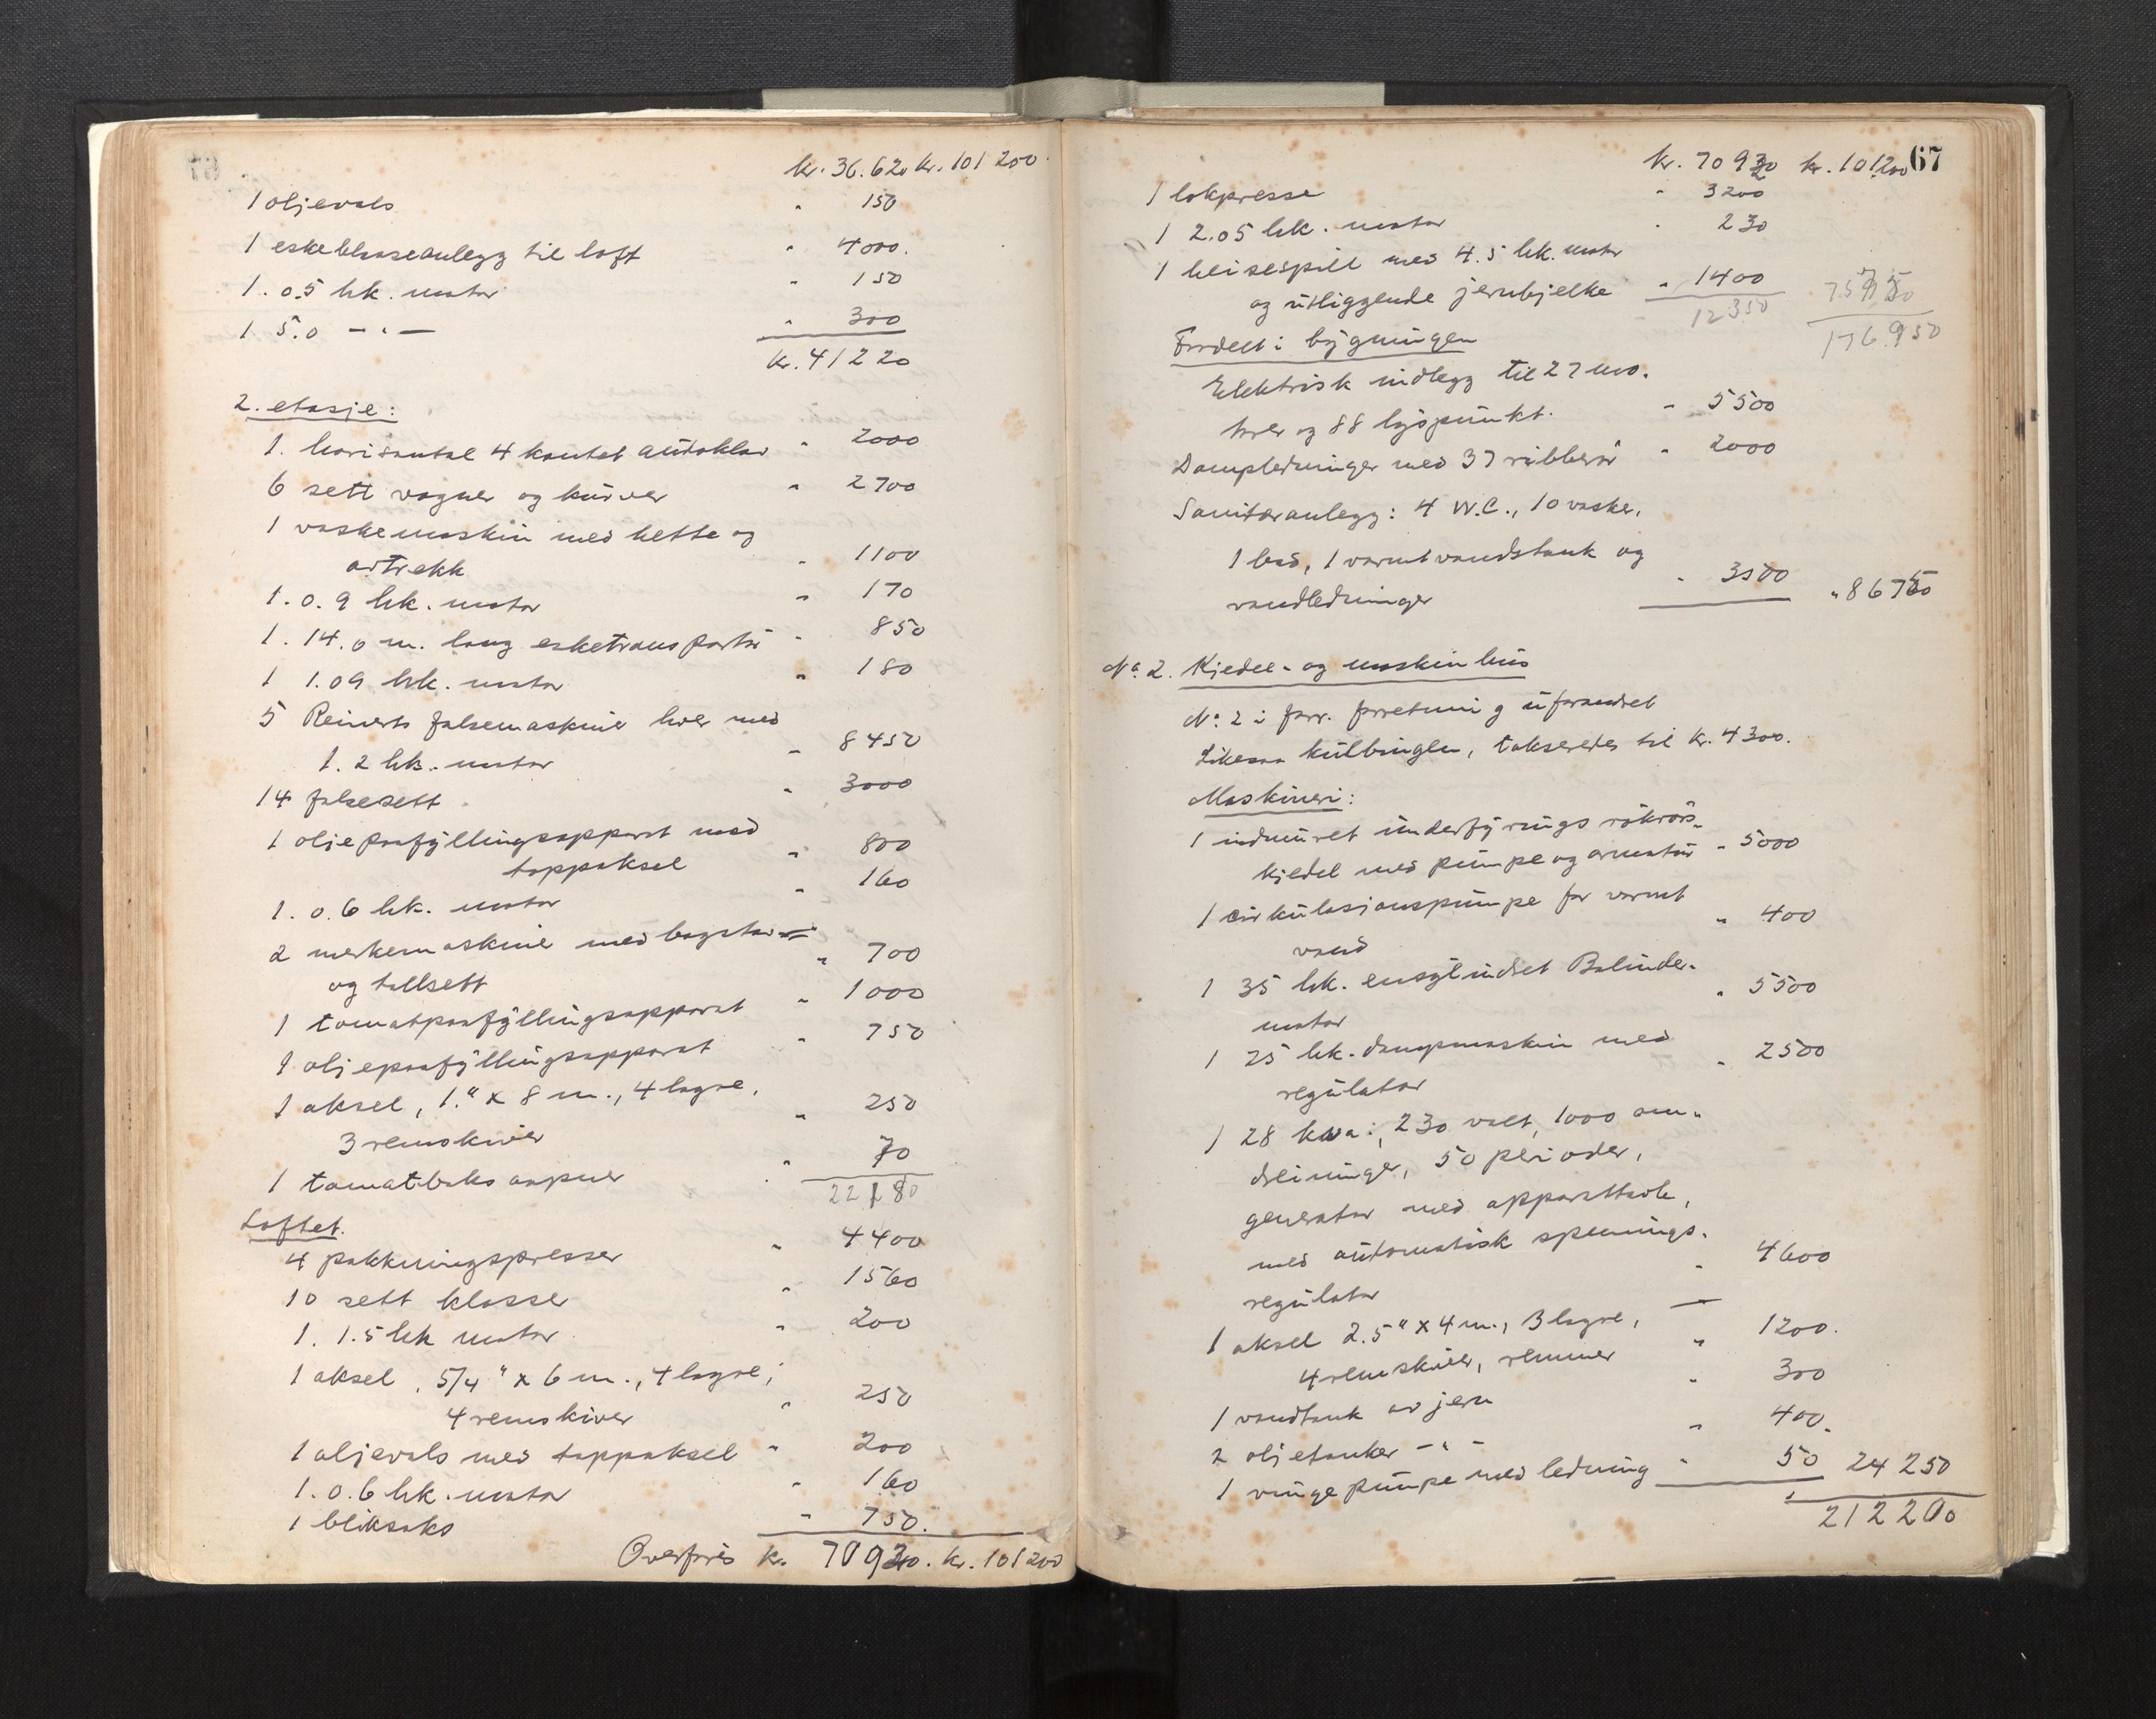 kr. 36.620 kr. 101 200
1 oljevals " 150
1 eskeblaaseanlegg til loft " 4000.
1. 0.5 hk. motor " 150
1 5.0 — " — " 300
kr. 41220
2. etasje:
1. horisontal 4 kantet autoklav " 2000
6 sett vogner og kurver " 2700
1 vaskemaskin med hette og
avtrekk " 1100
1. 0.9 hk. motor " 170
1. 14.0 m. lang esketransportør " 850
1 1.09 hk. motor " 180
5 Reinerts falsemaskiner hver med
1.2 hk. motor " 8450
14 falsesett " 3000
1 oljepaafyllingsapparat med
toppaksel " 800
1. 0.6 hk. motor " 160
2 merkemaskiner med bogstav-
og tallsett " 700
1 tomatpaafyllingsapparat " 1000
1 oljepaafyllingsapparat " 750
1 aksel, 1." x 8 m., 4 lagre,
3 remskiver " 250
1 tomatboks aapner " 70
22180
Loftet.
4 pakkningspresser " 4400
10 sett klosser " 1560
1. 1.5 hk motor " 200
1 aksel, 5/4 " x 6 m., 4 lagre,
4 remskiver " 250
1 oljevals med toppaksel " 200
1. 0.6 hk. motor " 160
1 bliksaks " 750.
Overføris kr. 70920. kr. 101200
67
kr. 70920 kr. 101200
1 lokpresse " 3200
1 2.05 hk. motor " 230
1 heisespill med 4.5 hk. motor
og utliggende jernbjelke " 1400
12350
75750
176.950
Fordelt i bygningen
Elektrisk indlegg til 27 mo-
torer og 88 lyspunkt. " 5500
Dampledninger med 37 ribberør " 2000
Sanitæranlegg: 4 W.C., 10 vasker,
1 bad, 1 varmtvandstank og
vandledninger " 3500 " 86750
No. 2. Kjedel- og maskinhus
No. 2 i forr. forretning uforandret
Likesaa kulbingen, takseredes til kr. 4300.
Maskineri:
1 indmuret underfyrings røkrørs-
kjedel med pumpe og armatur " 5000
1 cirkulasjonspumpe for varmt
vand " 400
1 35 hk. encylindret Bolinder-
motor " 5500
1 25 hk. dampmaskin med
regulator " 2500
1 28 kva:, 230 volt, 1000 om-
dreininger, 50 perioder,
generator med apparattavle,
med automatisk spennings-
regulator " 4600
1 aksel 2.5" x 4 m., 3 lagre,
4 remskiver, remmer " 1200.
1 vandtank av jern " 300
2 oljetanker - " - " 400.
1 vingepumpe med ledning " 50 24 250
212200